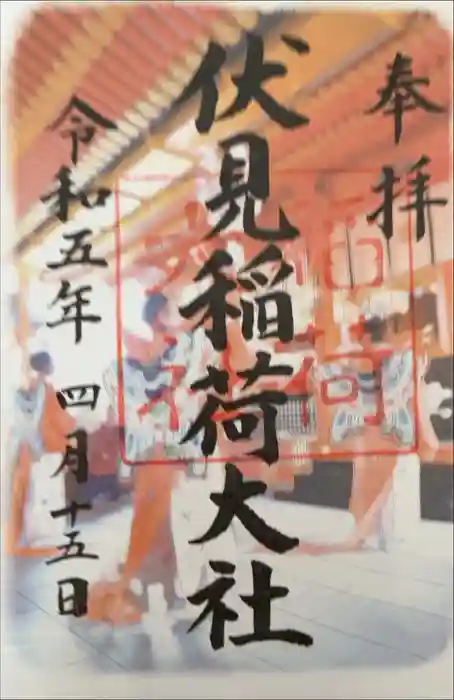 奉拝
伏見稲荷大社
令和五年 四月十五日